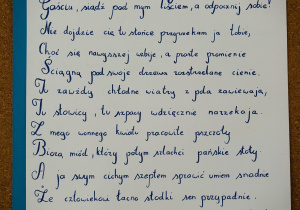 Gościu, siądź pod mym liściem, a odpocznij sobie!
Nie dojdzie cię tu słońce przyrzekam ja tobie,
Choć się nawyższej wzbije, a proste promienie
Ściągną pod swoje drzewa rozstrzelane cienie.
Tu zawżdy chłodne wiatry z pola zawiewają,
Tu słowicy, tu szpacy wdzięcznie narzekają.
Z mego wonnego kwiatu pracowite pszczoły
Biorą miód, który potym szlachci pańskie stoły.
A ja swym cichym szeptem sprawić umiem snadnie
Że człowiekowi łacno słodki sen przypadnie.